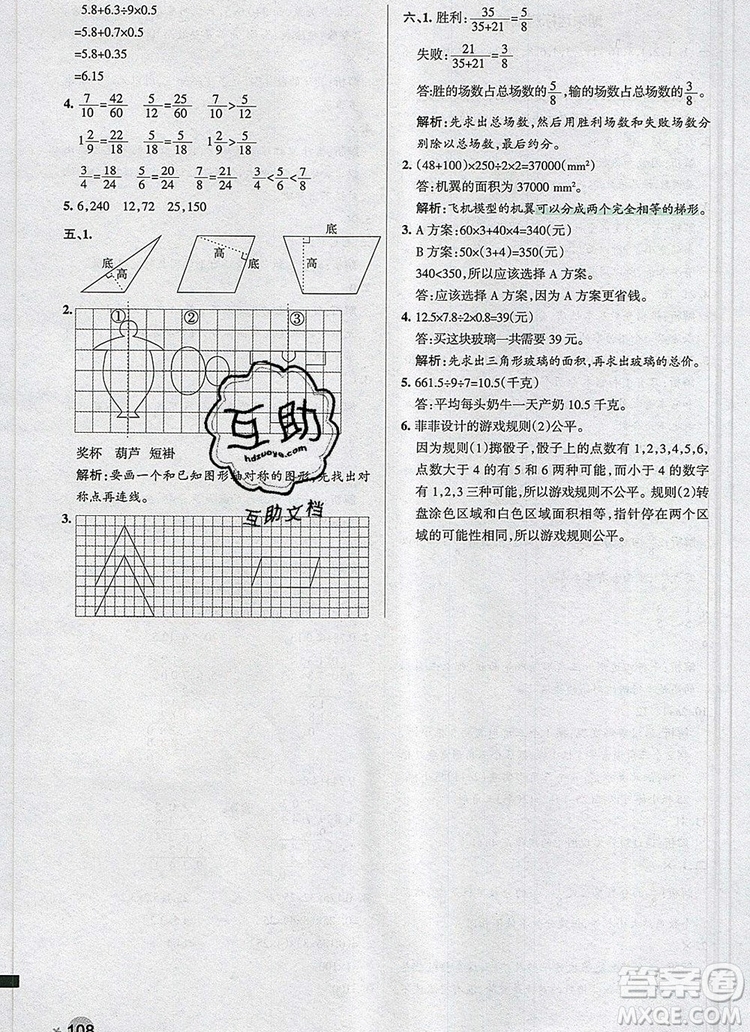 5.8+6.3÷9×0.5
=5.8+0.7×0.5
=5.8+0.35
=6.15
4. 7/10=42/60 5/12=25/60 7/10>5/12
1 2/9=22/18 5/18=5/18 1 2/9>5/18
3/4=18/24 7/8=21/24 5/6=20/24 3/4<5/6<7/8
5. 6,240 12,72 25,150
五、1.
底
高
高
底
底
高
2.
① ② ③
奖杯 葫芦 短褂
解析:要画一个和已知图形轴对称的图形,先找出对
称点再连线。
3.
108
六、1. 胜利:35/(35+21)=5/8
失败:21/(35+21)=3/8
答:胜的场数占总场数的5/8,输的场数占总场数的3/8。
解析:先求出总场数,然后用胜利场数和失败场数分
别除以总场数,最后约分。
2. (48+100)×250÷2×2=37000(mm²)
答:机翼的面积为 37000 mm²。
解析:飞机模型的机翼可以分成两个完全相等的梯形。
3. A 方案:60×3+40×4=340(元)
B 方案:50×(3+4)=350(元)
340<350,所以应该选择 A 方案。
答:应该选择 A 方案。因为 A 方案更省钱。
4. 12.5×7.8÷2×0.8=39(元)
答:买这块玻璃一共需要 39 元。
解析:先求出三角形玻璃的面积,再求出玻璃的总价。
5. 661.5÷9÷7=10.5(千克)
答:平均每头奶牛一天产奶 10.5 千克。
6. 菲菲设计的游戏规则(2)公平。
因为规则(1)掷骰子,骰子上的点数有 1,2,3,4,5,6,
点数大于 4 的有 5 和 6 两种可能,而小于 4 的数字
有 1,2,3 三种可能,所以游戏规则不公平。规则(2)转
盘涂色区域和白色区域面积相等,指针停在两个区
域的可能性相同,所以游戏规则公平。
互助
hdzuoye.com
互助文档
答案圈
MXQE.COM